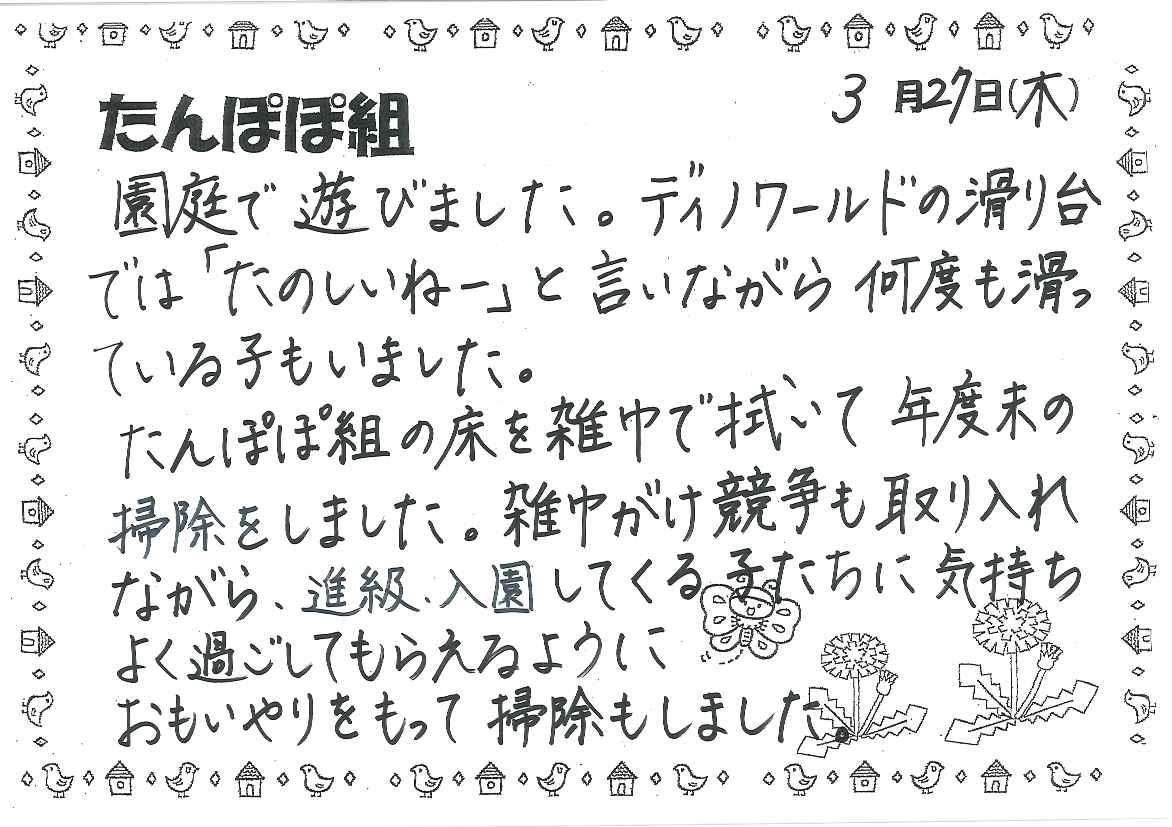 3月27日(木)
たんぽぽ組
園庭で遊びました。ディノワールドの滑り台
では「たのしいねー」と言いながら何度も滑っ
ている子もいました。
たんぽぽ組の床を雑巾で拭いて年度末の
掃除をしました。雑巾がけ競争も取り入れ
ながら、進級、入園してくる子たちに気持ち
よく過ごしてもらえるように
おもいやりをもって掃除もしました。